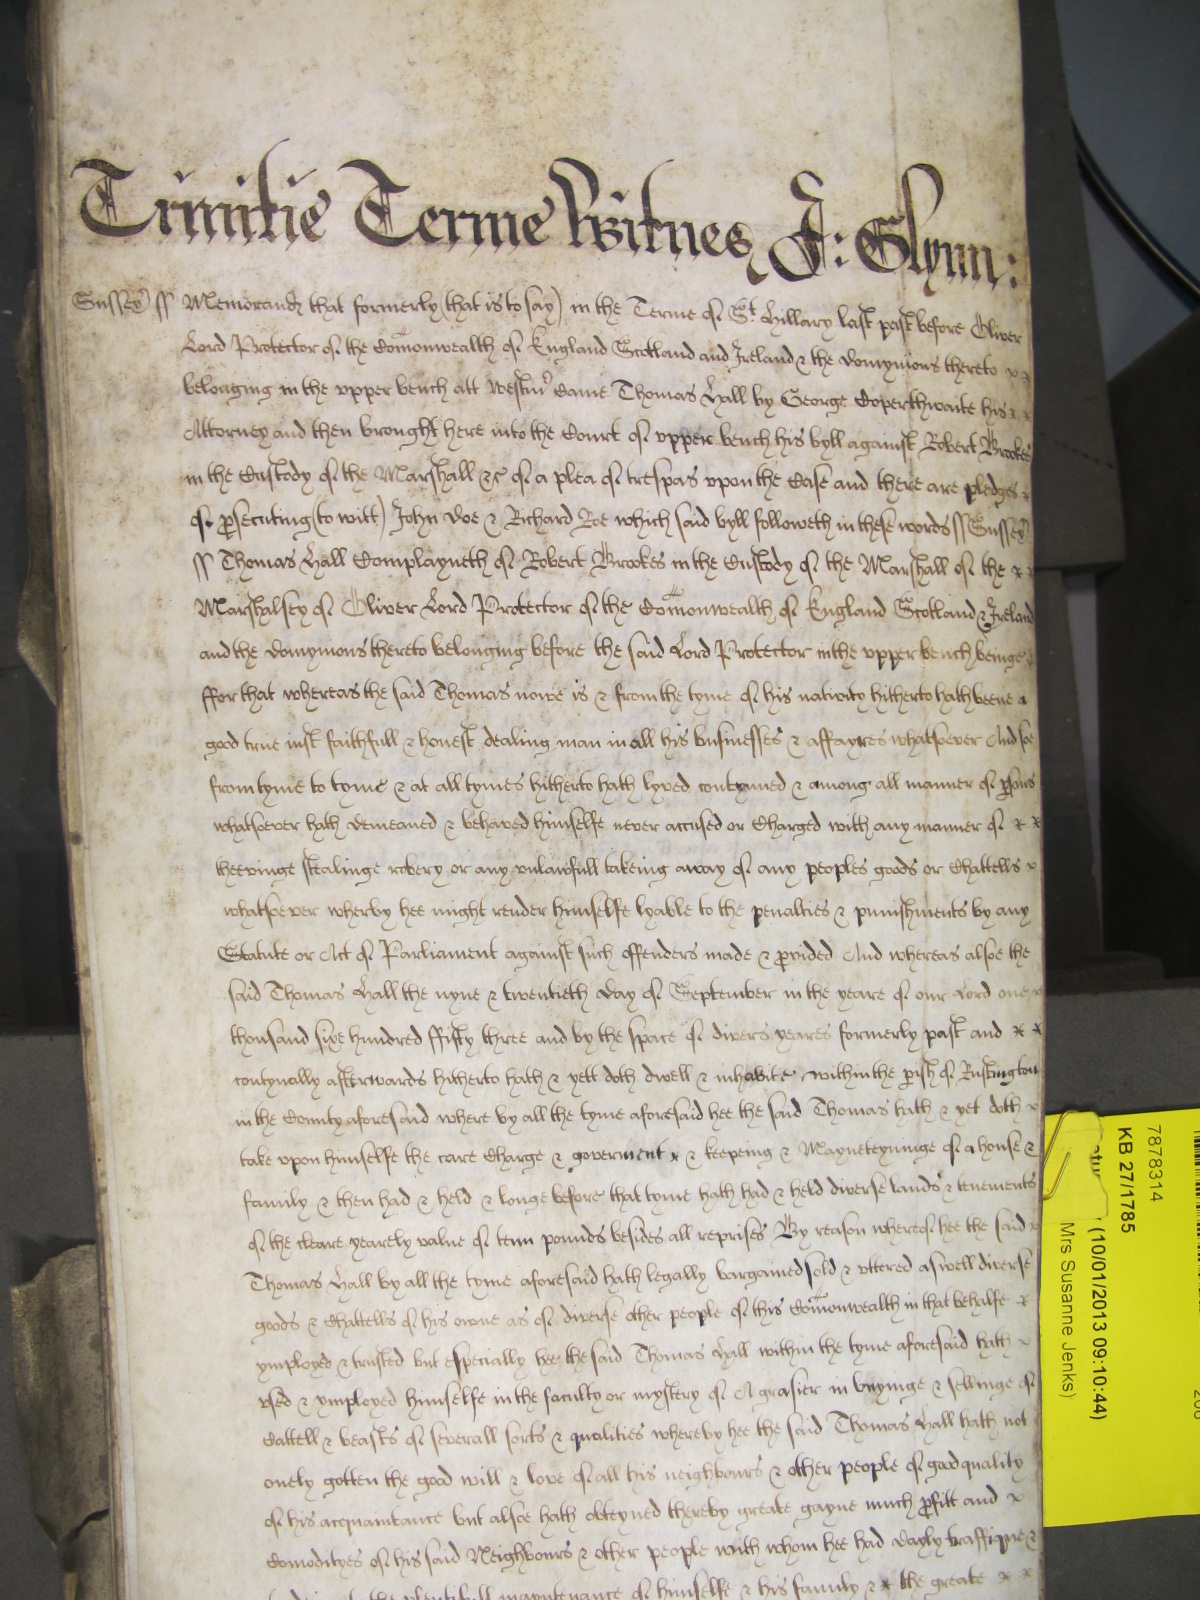 Trinitie Terme Witnes J: Glynn:
Sussex ss Memorand that formerly (that is to say) in the Terme of St Hillary last past before Oliver
Lord Protector of the Comonwealth of England Scotland and Ireland & the domynions thereto
belonging in the upper bench att Westmr Came Thomas Hall by George Coperthwaite his
Attorney and then brought here into the Court of upper bench his byll against Robert Brookes
in the Custody of the Marshall &c of a plea of trespas upon the Case and there are pledges
of psecuting (to witt) John Doe & Richard Roe which said byll followeth in these words ss Sussex
ss Thomas Hall Complayneth of Robert Brookes in the Custody of the Marshall of the
Marshalsey of Oliver Lord Protector of the Comonwealth of England Scotland & Ireland
and the domynions thereto belonging before the said Lord Protector in the upper bench beinge
ffor that whereas the said Thomas nowe is & from the tyme of his nativity hitherto hath beene a
good true iust faithfull & honest dealing man in all his businesses & affayres whatsoever And soe
from tyme to tyme & at all tymes hitherto hath lyved contynued & among all manner of psons
whatsoever hath demeaned & behaved himselfe never accused or Charged with any manner of
theevinge stealinge robery or any unlawfull takeing away of any peoples goods or Chattells
whatsoever wherby hee might render himselfe lyable to the penalties & punishments by any
Statute or Act of Parliament against such offenders made & pvided And whereas alsoe the
said Thomas Hall the nyne & twentieth day of September in the yeare of our Lord one
thousand sixe hundred ffifty three and by the space of divers yeares formerly past and
contynally afterwards hitherto hath & yett doth dwell & inhabite within the pish of Rustington
in the County aforesaid where by all the tyme aforesaid hee the said Thomas hath & yet doth
take upon himselfe the care Charge & goverment & keepeing & Mayneteyninge of a house &
family & then had & held & longe before that tyme hath had & held diverse lands & tenements
of the cleare yearely value of tenn pounds besides all reprises By reason whereof hee the said
Thomas Hall by all the tyme aforesaid hath legally bargained sold & uttered aswell diverse
goods & Chattells of his owne as of diverse other people of this Comonwealth in that behalfe
ymployed & trusted but especially hee the said Thomas Hall within the tyme aforesaid hath
used & ymployed himselfe in the faculty or mystery of A grasier in buyinge & sellinge of
Cattell & beasts of severall sorts & qualities whereby hee the said Thomas Hall hath not
onely gotten the good will & love of all his neighbours & other people of good quality
of his acquaintance but alsoe hath obteyned thereby greate gayne much pfitt and
Comodityes of his said Neighbours & other people with whom hee had dayly traffique &
the plentifull maintenance of himselfe & his family & the greate
7878314
KB 27/1785
(10/01/2013 09:10:44)
Mrs Susanne Jenks)